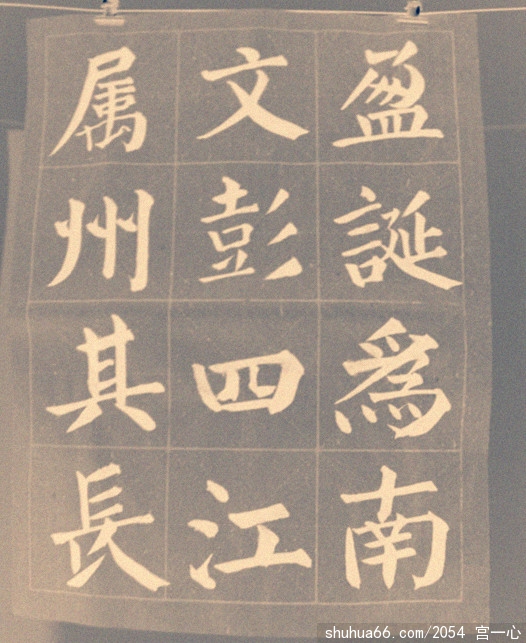 盈誕爲南
文彭四江
属州其長
shuhua66.com/2054 宫一心